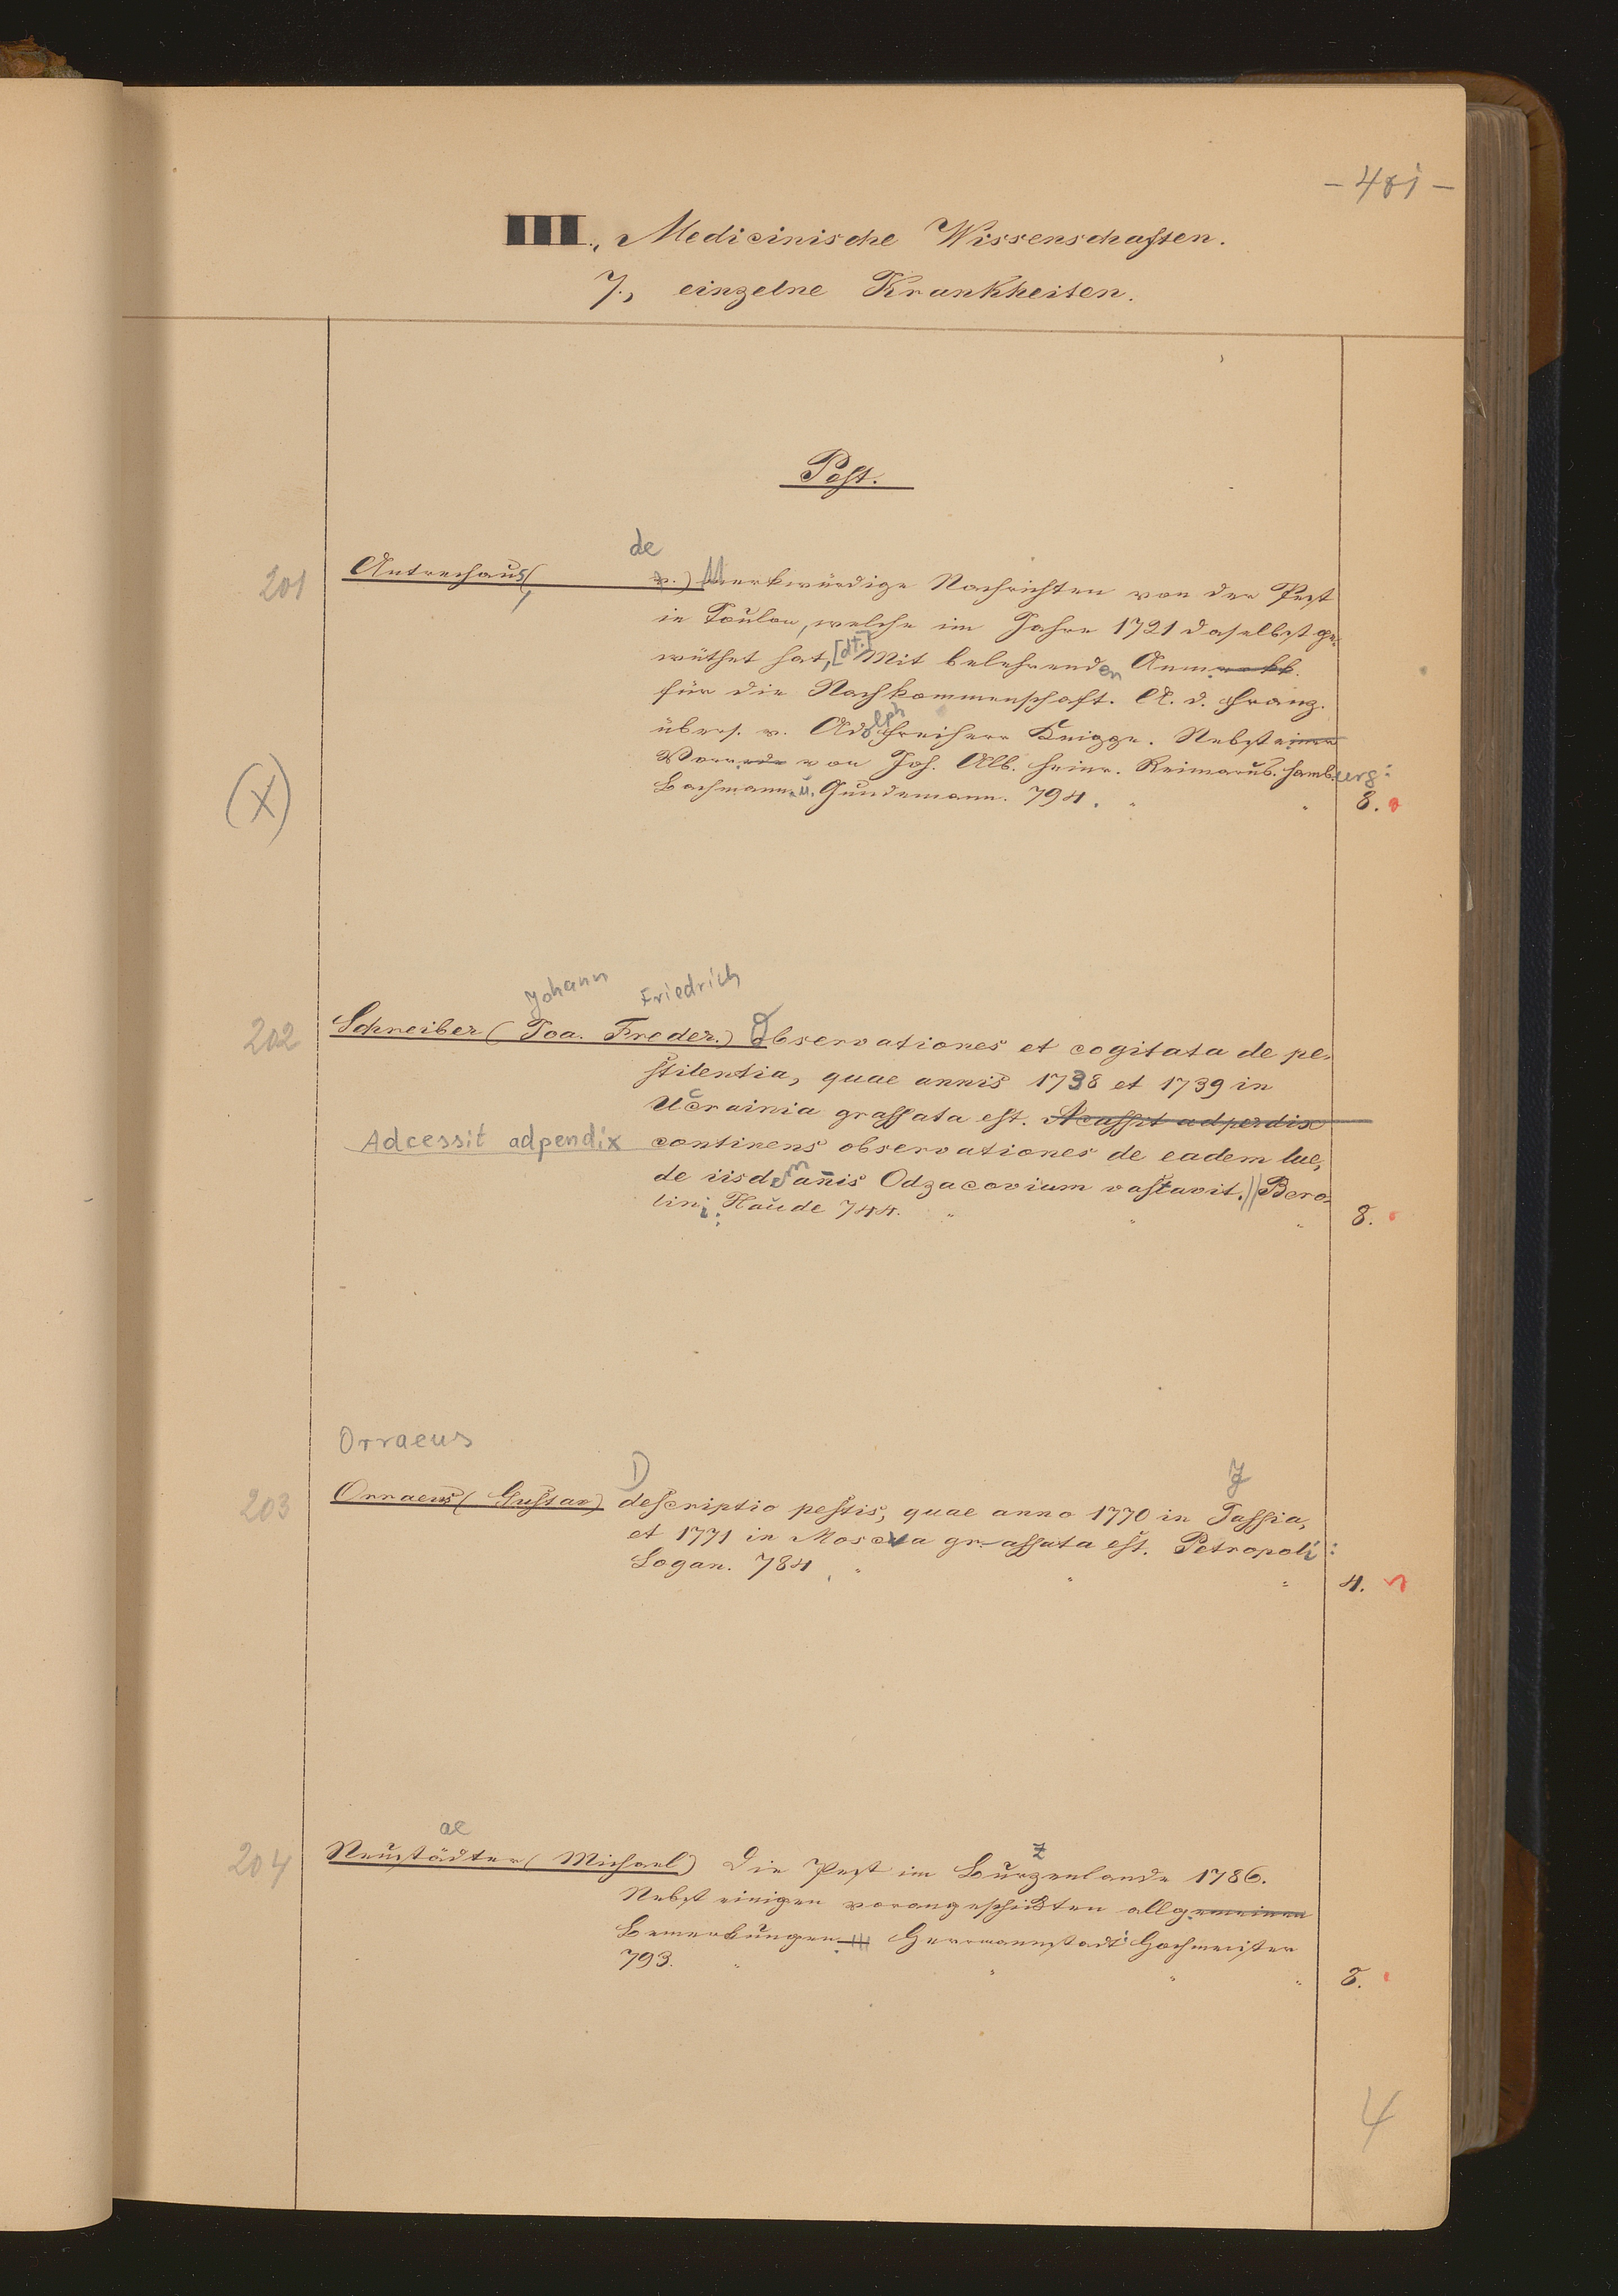 - 481 -
III., Medicinische Wissenschaften.
7., einzelne Krankheiten.
Pest.
de
201 Antrechaus, ( v.) Merkwürdige Nachrichten von der Pest
in Toulon, welche im Jahre 1721 daselbst ge-
wüthet hat, [dt.] Mit belehrenden Anmerkk.
für die Nachkommenschaft. A. d. Franz.
übers. v. Adolph Freiherr Knigge. Nebst einer
Vorrede von Joh. Alb. Heinr. Reimarus. Hamburg:
(X) Bachmann u. Gundermann. 794. " " 8.
Johann Friedrich
202 Schreiber (Joa. Freder.) Observationes et cogitata de pe-
stilentia, quae annis 1738 et 1739 in
Ucrainia grassata est. Acassit adpendix
Adcessit adpendix continens observationes de eadem lue,
de iisdem annis Odzacovium vastavit. // Bero-
lini: Haude 744. " " " 8.
Orraeus
D J
203 Orraeus (Gustav) descriptio pestis, quae anno 1770 in Jassia,
et 1771 in Moscva grassata est. Petropoli:
Logan. 784. " " " 4.
ae z
204 Neustädter (Michael) Die Pest im Burzenlande 1786.
Nebst einigen vorangeschickten allgemeinen
Bemerkungen. Herrmannstadt Hochmeister
793. " " " " 8.
4